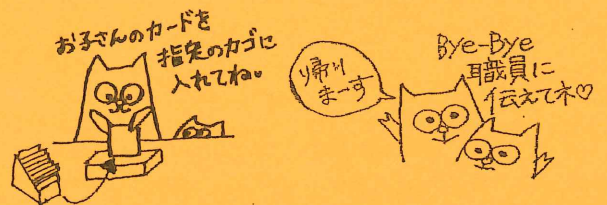 お子さんのカードを
指定のカゴに
入れてね。
帰り
まーす
Bye-Bye
職員に
伝えてネ♡